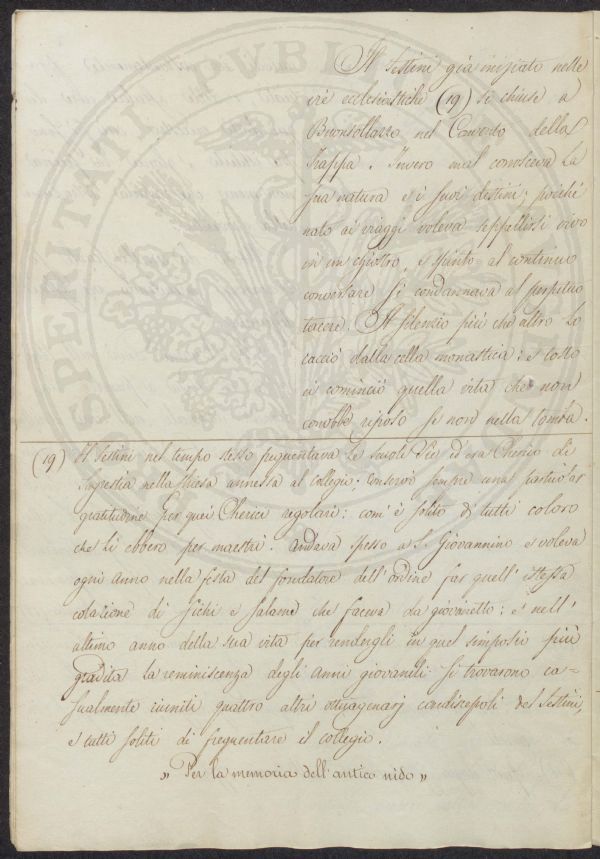 Il Sestini già iniziato nelle
vie ecclesiastiche (19) si chiuse a
Buonsollazzo nel Convento della
Trappa. Invero mal conosceva la
sua natura e i suoi destini; poichè
nato ai viaggi voleva seppellirsi vivo
in un chiostro, e spinto al continuo
conversare si condannava al perpetuo
tacere. Il silenzio più che altro lo
cacciò dalla cella monastica: e tosto
ei cominciò quella vita che non
conobbe riposo se non nella tomba.
(19) Il Sestini nel tempo stesso frequentava le scuole Pie ed era Cherico di
Sagrestia nella chiesa annessa al collegio; conservò sempre una particolar
gratitudine per quei Cherici regolari: com'è solito di tutti coloro
che li ebbero per maestri. Andava spesso a S. Giovannino e voleva
ogni anno nella festa del fondatore dell'ordine far quell'istessa
colazione di fichi e salame che faceva da giovanetto: e nell'
ultimo anno della sua vita per rendergli in quel simposio più
gradita la reminiscenza degli anni giovanili si trovarono ca=
sualmente riuniti quattro altri ottuagenarj condiscepoli del Sestini,
e tutti soliti di frequentare il collegio.
" Per la memoria dell'antico nido "
PERITATI PVBLI